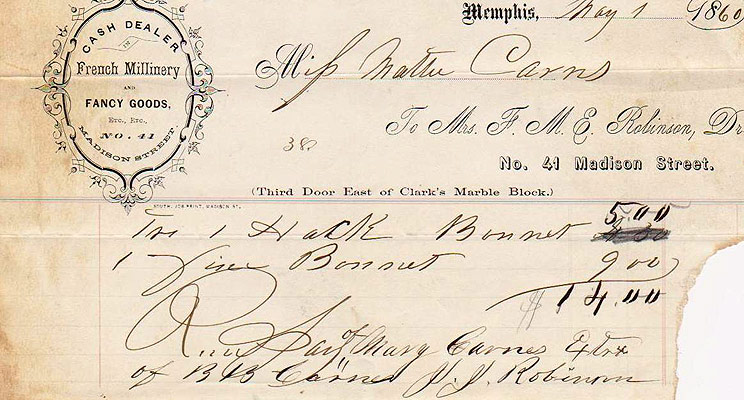 CASH DEALER
IN
French Millinery
AND
FANCY GOODS,
ETC., ETC.,
NO. 41
MADISON STREET
Memphis, May 1 1860
Miss Mattie Carns
To Mrs. F. M. E. Robinson, Dr
38
No. 41 Madison Street.
(Third Door East of Clark's Marble Block.)
SOUTH, JOB PRINT, MADISON ST.
1 Hack Bonnet 5.00
1 Fine Bonnet 9 00
$14.00
Pay Mary Carnes Extrx
of B B Carnes J. J. Robinson